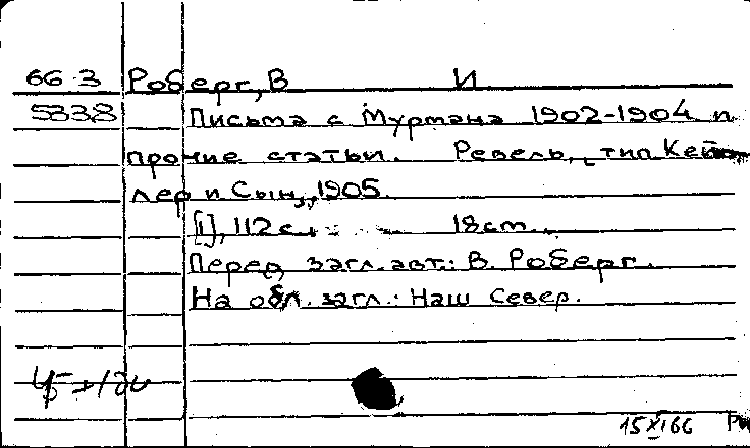 66 3 Роберг, В И
5338 Письма с Мурмана 1902-1904 и
прочие статьи. Ревель, тип. Кей
лер и Сын, 1905.
[1], 112 с. 18 cm.
Перед загл. авт.: В. Роберг.
На обл. загл.: Наш Север.
15 XI 66